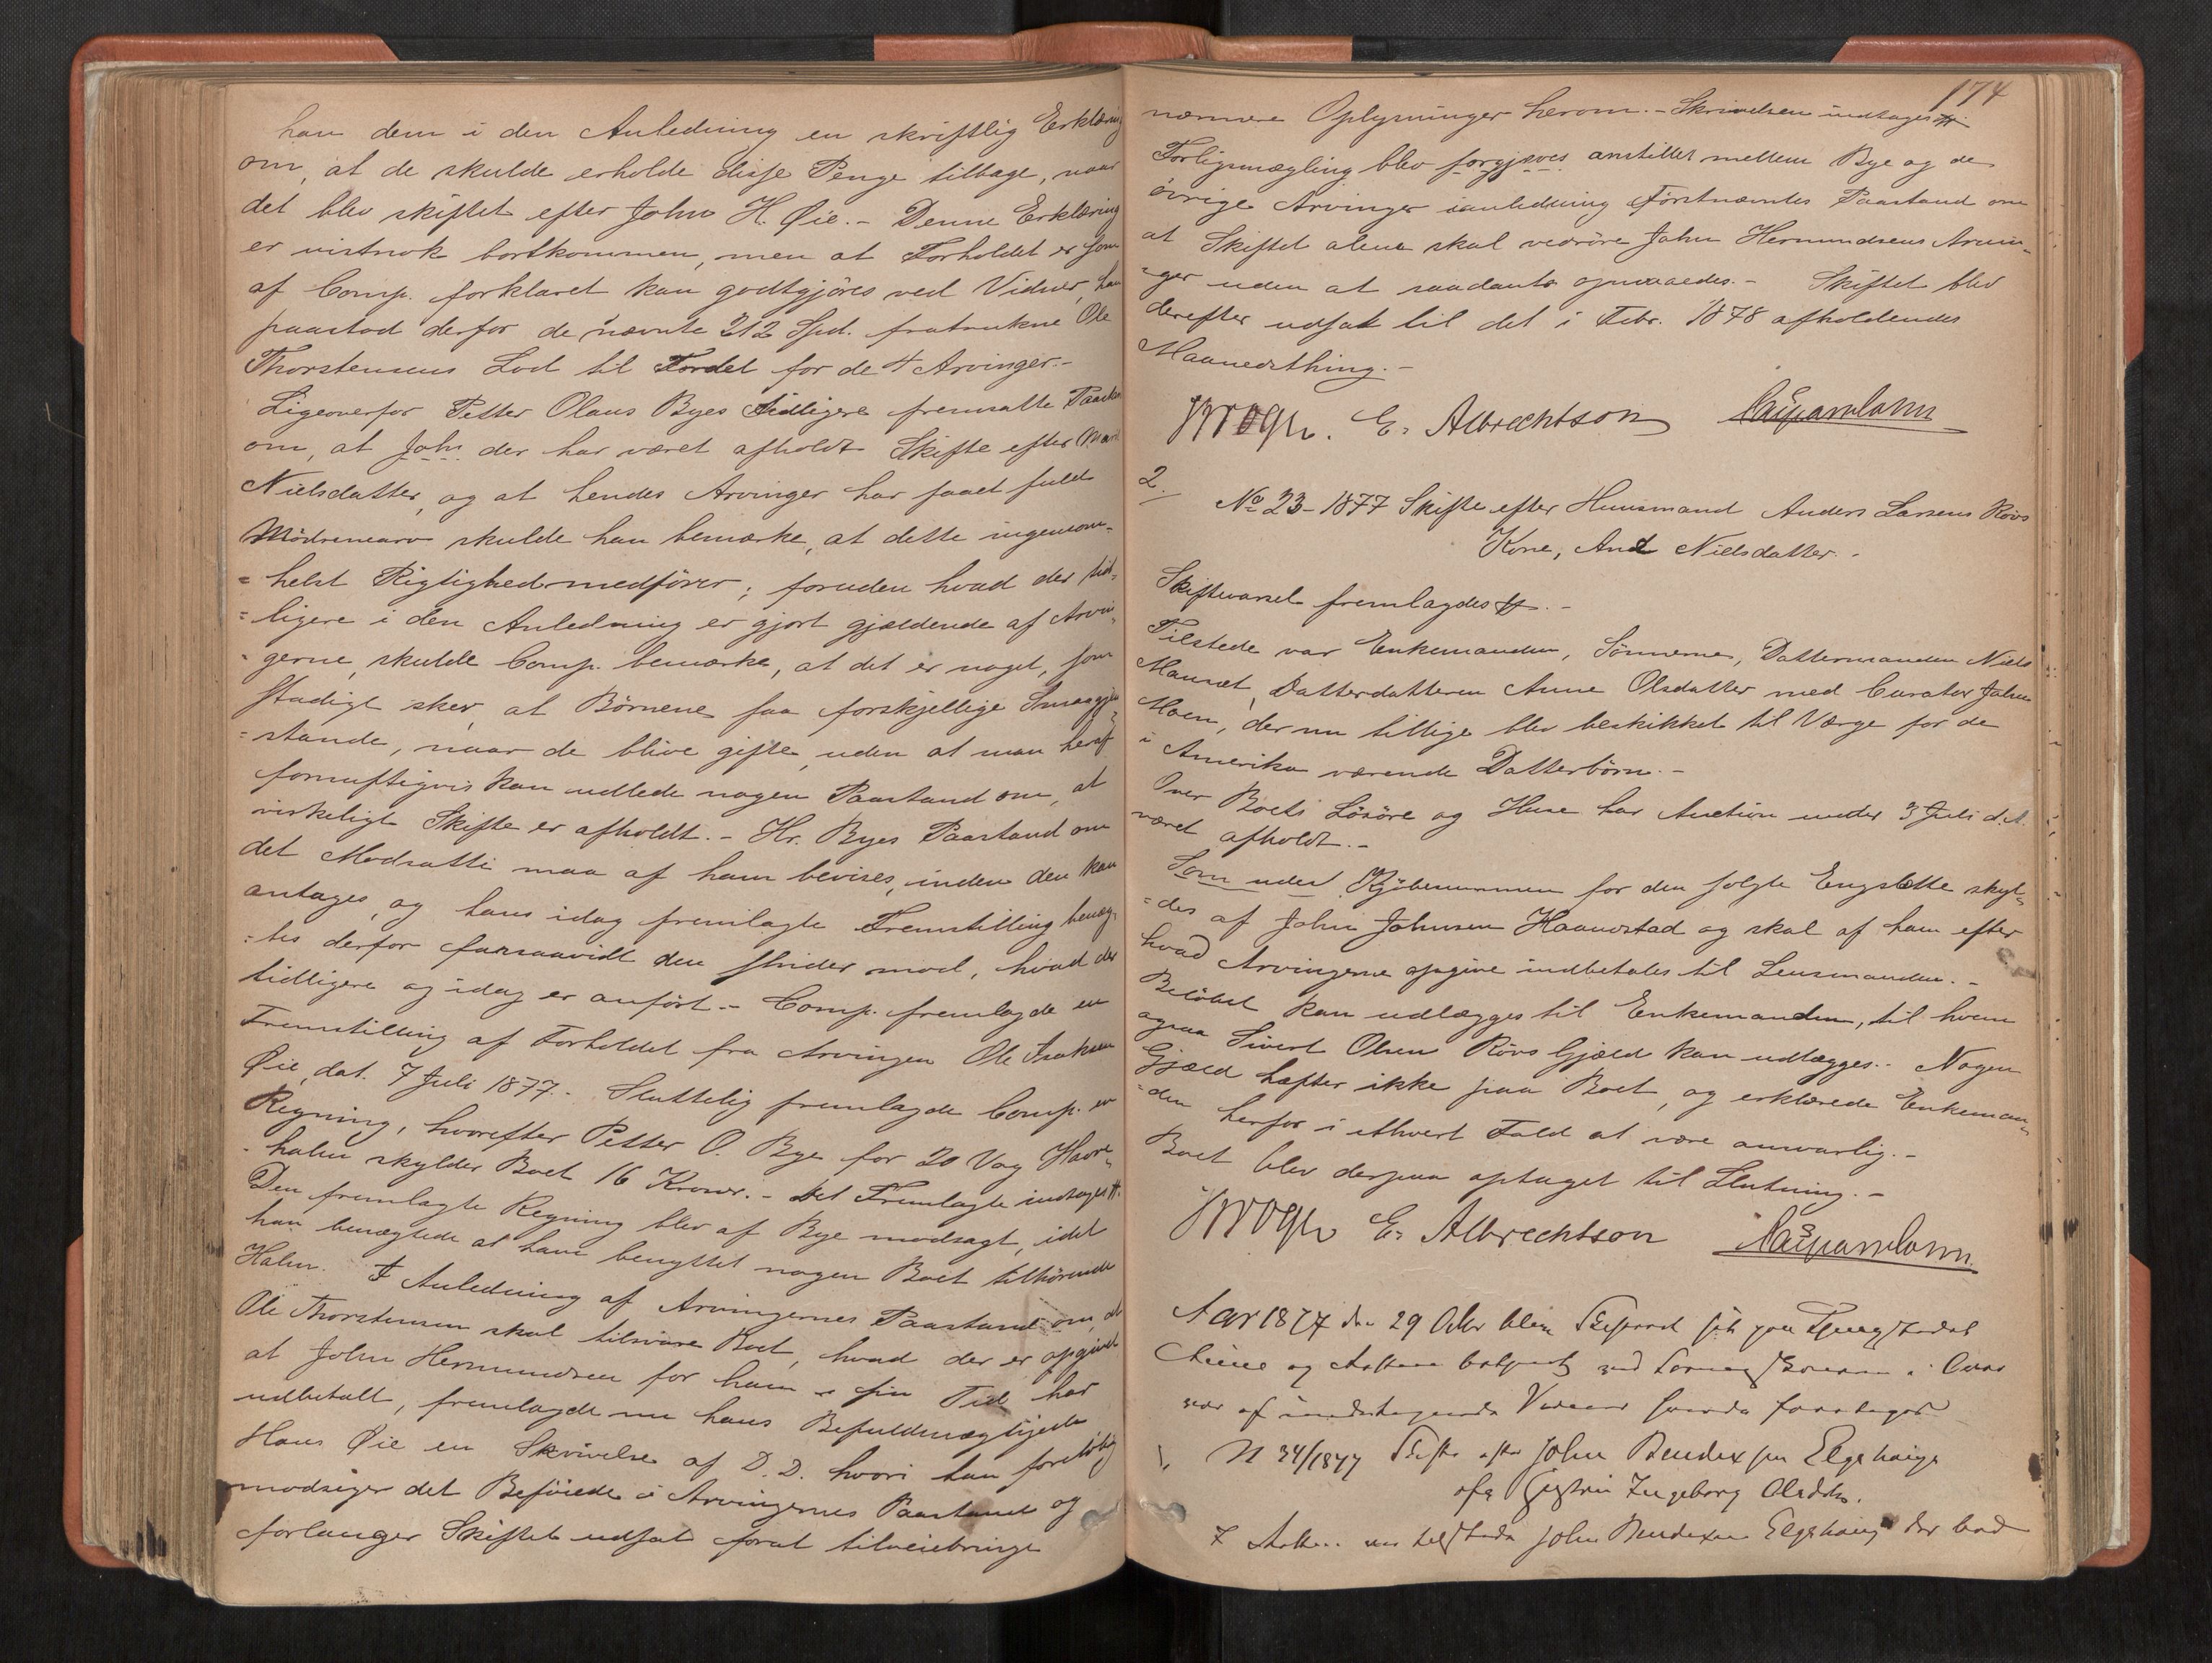 han dem i den Anledning en skriftlig Erklæring
om, at de skulde erholde disse Penge tilbage, naar
det blev skiftet efter John H. Øie. - Denne Erklæring
er vistnok bortkommen, men at Forholdet er som
af Comp. forklaret kan godtgjöres ved Vidner, han
paastod derfor de nævnte 212 Spd. fratrukne Ole
Thorstensens Lod til Fordel for de 4 Arvinger.-
Ligeoverfor Petter Olaus Byes tidligere fremsatte Paastand
om, at der har været afholdt Skifte efter Marit
Nielsdatter, og at hendes Arvinger har faaet fuld
Mödrenearv skulde han bemærke, at dette ingensom-
= helst Rigtighed medförer; foruden hvad der tid-
= ligere i den Anledning er gjort gjældende af Arvin-
= gerne, skulde Comp. bemærke, at det er noget, som
stadigt sker, at Börnene faa forskjellige Smaagjen-
= stande, naar de blive gifte, uden at man heraf
fornuftigvis kan udlede nogen Paastand om, at
virkeligt Skifte er afholdt. - Hr. Byes Paastand om
det Modsatte maa af ham bevises, inden den kan
antages, og hans idag fremlagte Fremstilling benæg-
= tes derfor forsaavidt den strider mod, hvad der
tidligere og idag er anfört. - Comp. fremlagde en
Fremstilling af Forholdet fra Arvingen Ole Isaksen
Øie, dat. 7 Juli 1877. - Sluttelig fremlagde Comp. en
Regning, hvorefter Petter O. Bye for 20 Vog Havre-
- halm skylder Boet 16 Kroner. - Det Fremlagte indtages #.
Den fremlagte Regning blev af Bye modsagt, idet
han benægtede at have benyttet nogen Boet tilhörende
Halm. I Anledning af Arvingernes Paastand om, at
Ole Thorstensen skal tilsvare Boet, hvad der er opgivet
at John Hermundsen for ham i sin Tid har
udbetalt, fremlagde nu hans Befuldmægtigede
Hans Øie en Skrivelse af D. D. hvori han foreløbig
modsiger det Beföiede i Arvingernes Paastand og
forlanger Skiftet udsat forat tilveiebringe
174
nærmere Oplysninger herom. - Skrivelsen indtages #.
Forligsmægling blev forgjæves anstillet mellem Bye og de
övrige Arvinger ianledning Förstnævntes Paastand om
at Skiftet alene skal vedröre John Hermundsens Arvin-
= ger uden at saadant opnaaedes. - Skiftet blev
derefter udsat til det i Febr. 1878 afholdendes
Maanedsthing. -
Krogh. E. Albrechtson
2.
No 23 - 1877 Skifte efter Huusmand Anders Larsens Rövs
Kone, Ane Nielsdatter. -
Skiftevarsel fremlagdes #. -
Tilstede var Enkemanden, Sönnerne, Dattermanden Niels
Mauset, Datterdatteren Anne Olsdatter med Curator John
Moen, der nu tillige blev beskikket til Værge for de
i Amerika værende Datterbörn. -
Over Boets Lösöre og Huse har Auction under 3 Juli d. A.
været afholdt. -
Kjöbesummen for den solgte Engslette skyl-
= des af John Johnsen Haanstad og skal af ham efter
hvad Arvingerne opgive indbetales til Lensmanden. -
Belöbet kan udlægges til Enkemanden, til hvem
ogsaa Sivert Olsen Rövs Gjæld kan udlægges. - Nogen
Gjæld hæfter ikke paa Boet, og erklærede Enkeman-
= den herfor i ethvert Fald at være ansvarlig. -
Boet blev derpaa optaget til Slutning. -
Krogh E. Albrechtson
Aar 1877 den 29 Oktbr blev Skifteret sat paa Thingstedet
og Retten betjent
var af undertegnede Vidner hvorda foretoges
1. N 34/1877 Skifte efter John Bendixsen Elgshaug
ofg Hustru Ingeborg Olsdtr.
I Retten var tilstede John Bendixsen Elgshaug der